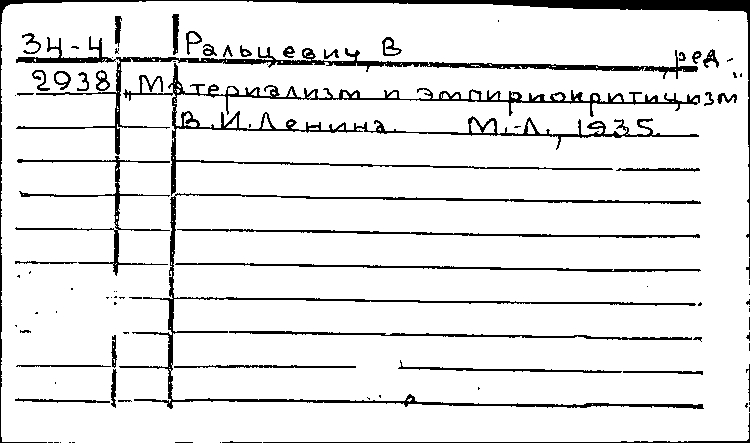 34-4 Ральцевич, В ред.
2938 „Материализм и эмпириокритицизм"
В.И.Ленина. М.-Л., 1935.